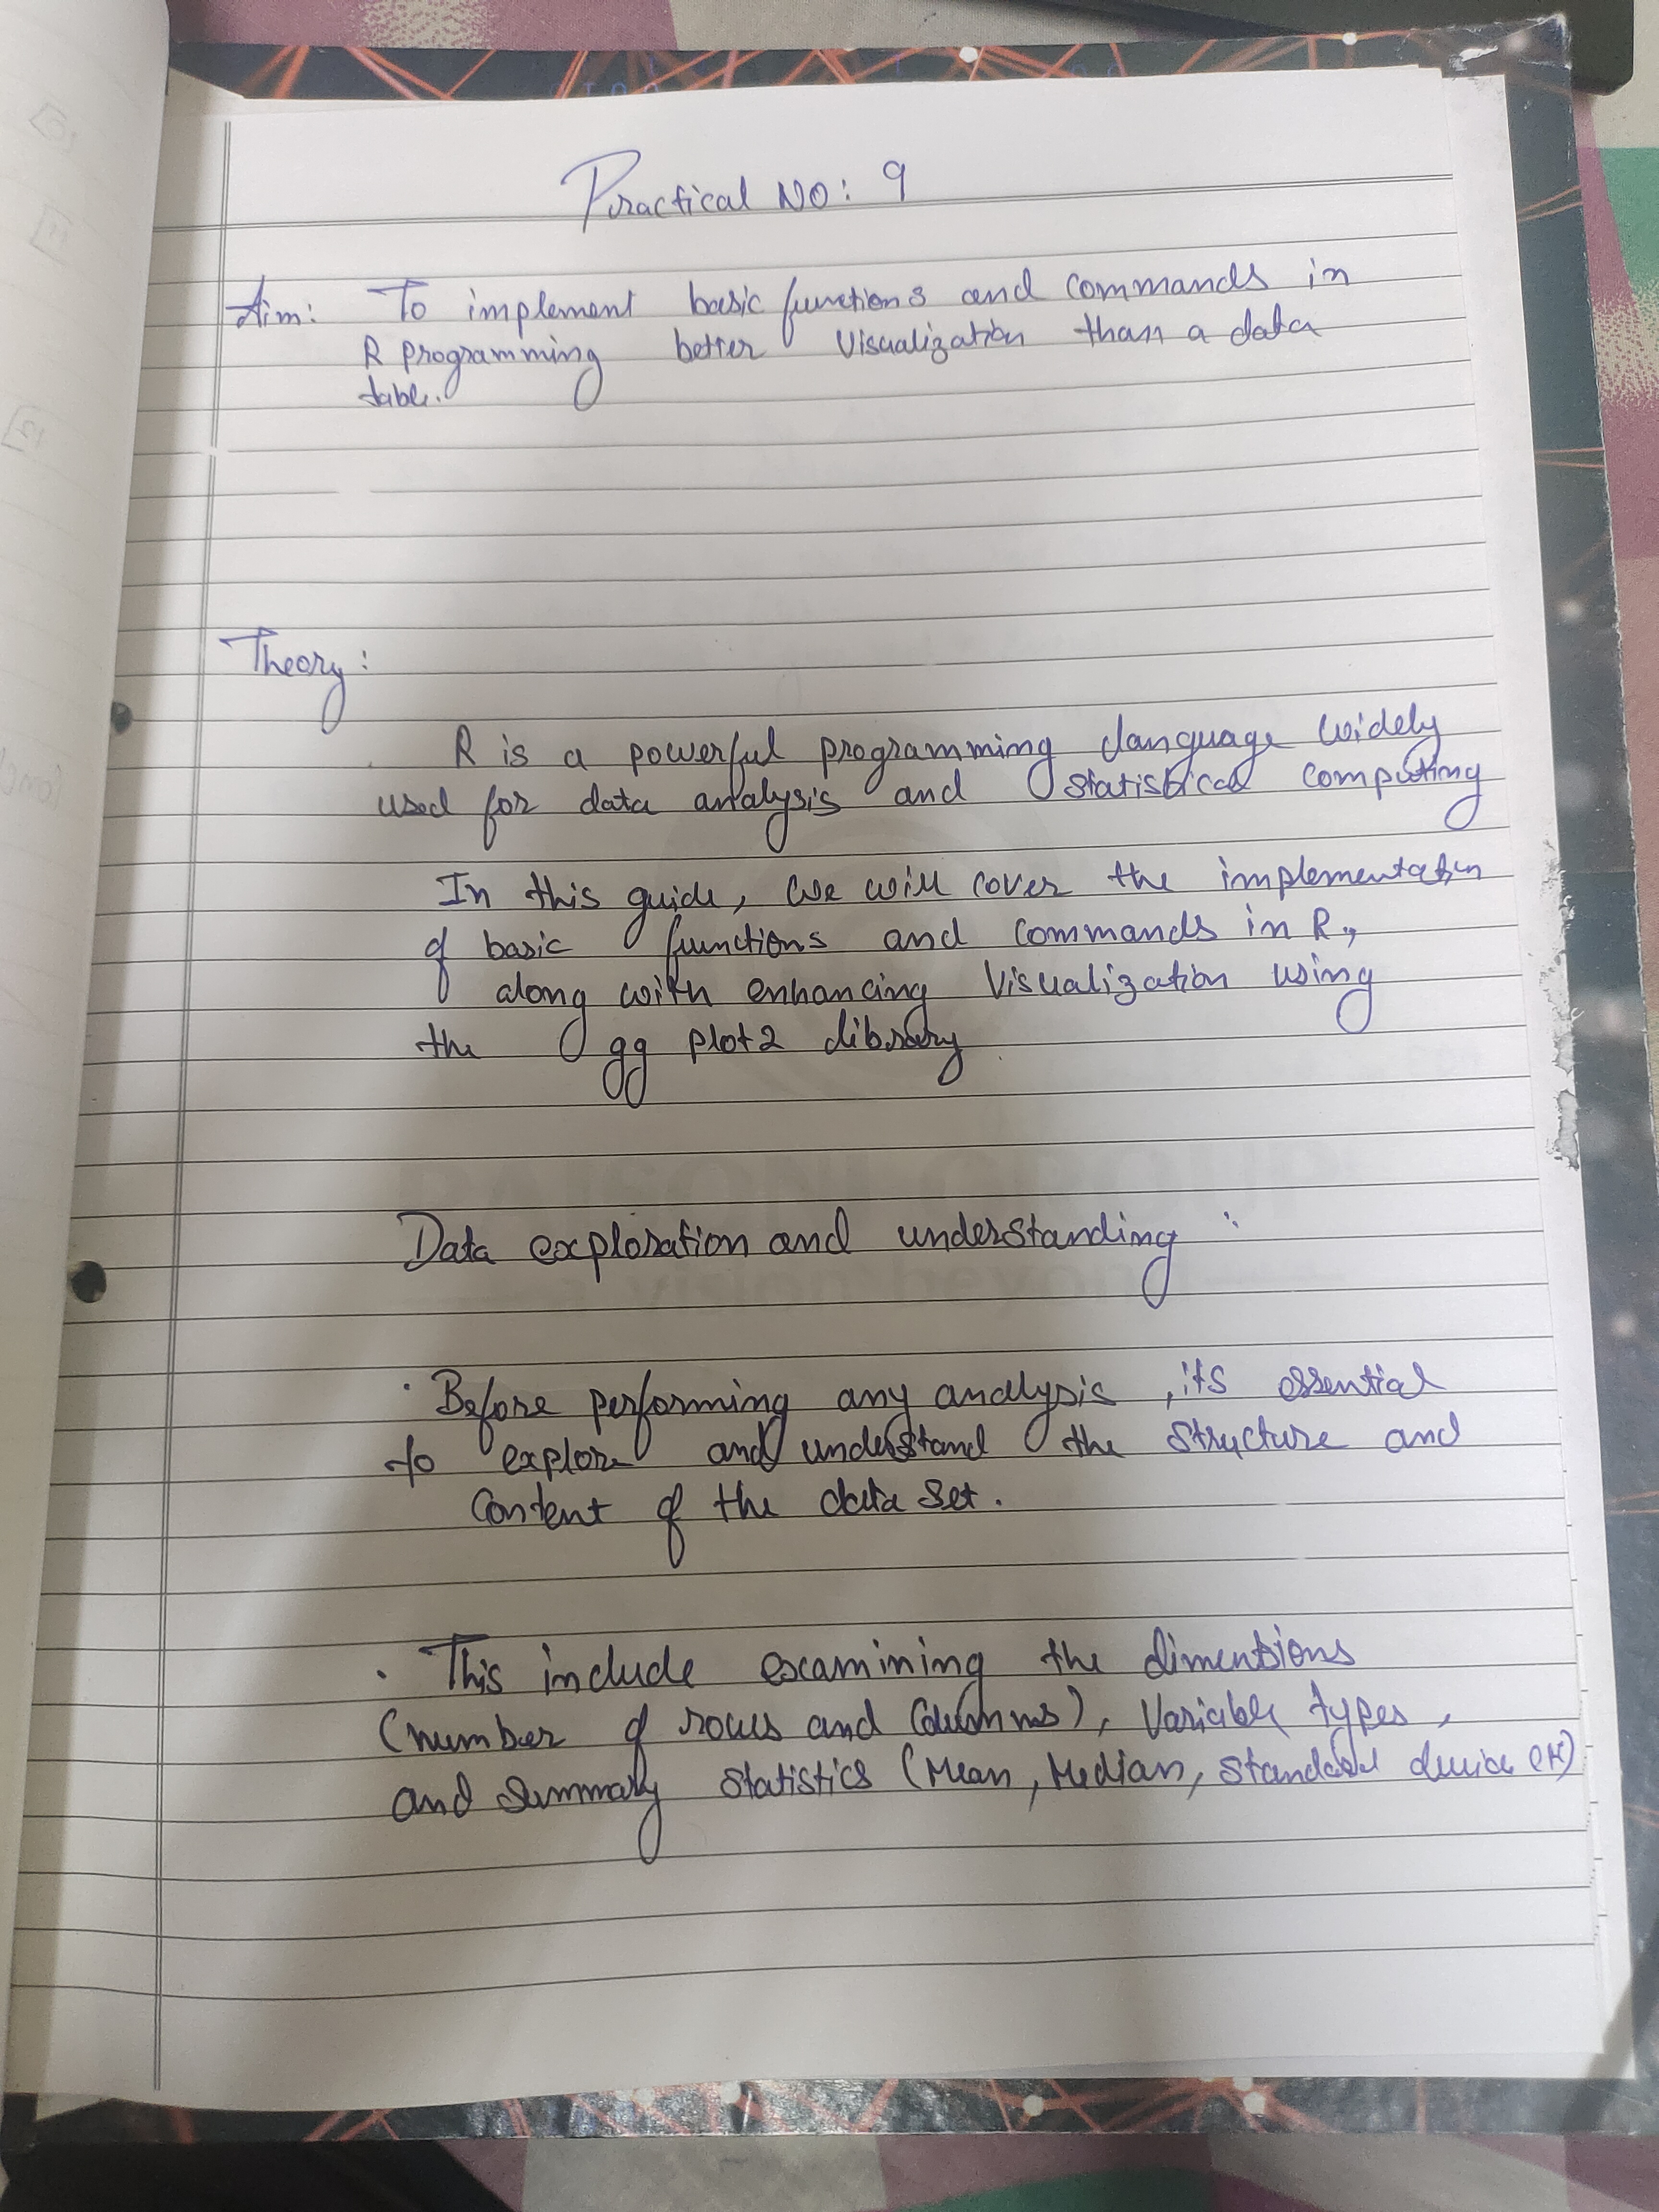 Practical No: 9
Aim: To implement basic functions and commands in
R programming better visualization than a data
table.
Theory:
R is a powerful programming language widely
used for data analysis and statistical computing
In this guide, we will cover the implementation
of basic functions and commands in R,
along with enhancing visualization using
the gg plot2 library
Data exploration and understanding:
· Before performing any analysis, its essential
to explore and understand the structure and
content of the data set.
· This include examining the dimentsions
(number of rows and columns), variable types,
and summary statistics (Mean, Median, standard